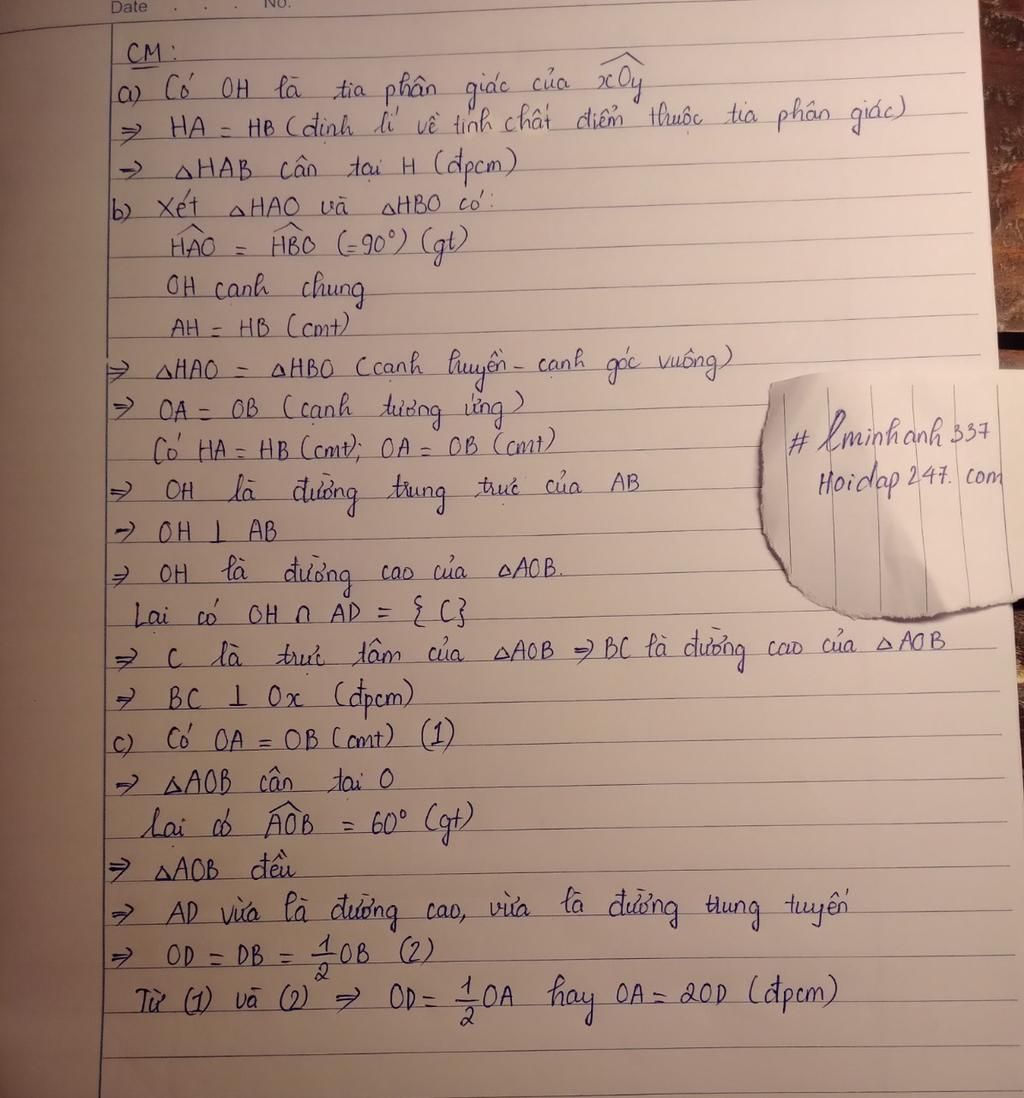 Date . . . No.
CM:
a) Có OH là tia phân giác của xOy
⇒ HA = HB (định lí về tính chất điểm thuộc tia phân giác)
⇒ △HAB cân tại H (đpcm)
b) Xét △HAO và △HBO có:
HAO = HBO (=90°) (gt)
OH cạnh chung
AH = HB (cmt)
⇒ △HAO = △HBO (cạnh huyền - cạnh góc vuông)
⇒ OA = OB (cạnh tương ứng)
Có HA = HB (cmt); OA = OB (cmt)
⇒ OH là đường trung trực của AB
⇒ OH ⊥ AB
⇒ OH là đường cao của △AOB.
Lại có OH ∩ AD = {C}
⇒ C là trực tâm của △AOB ⇒ BC là đường cao của △AOB
⇒ BC ⊥ Ox (đpcm)
c) Có OA = OB (cmt) (1)
⇒ △AOB cân tại O
Lại có AOB = 60° (gt)
⇒ △AOB đều
⇒ AD vừa là đường cao, vừa là đường trung tuyến
⇒ OD = DB = 1/2 OB (2)
Từ (1) và (2) ⇒ OD = 1/2 OA hay OA = 2OD (đpcm)
# lminhanh337
Hoidap247.com